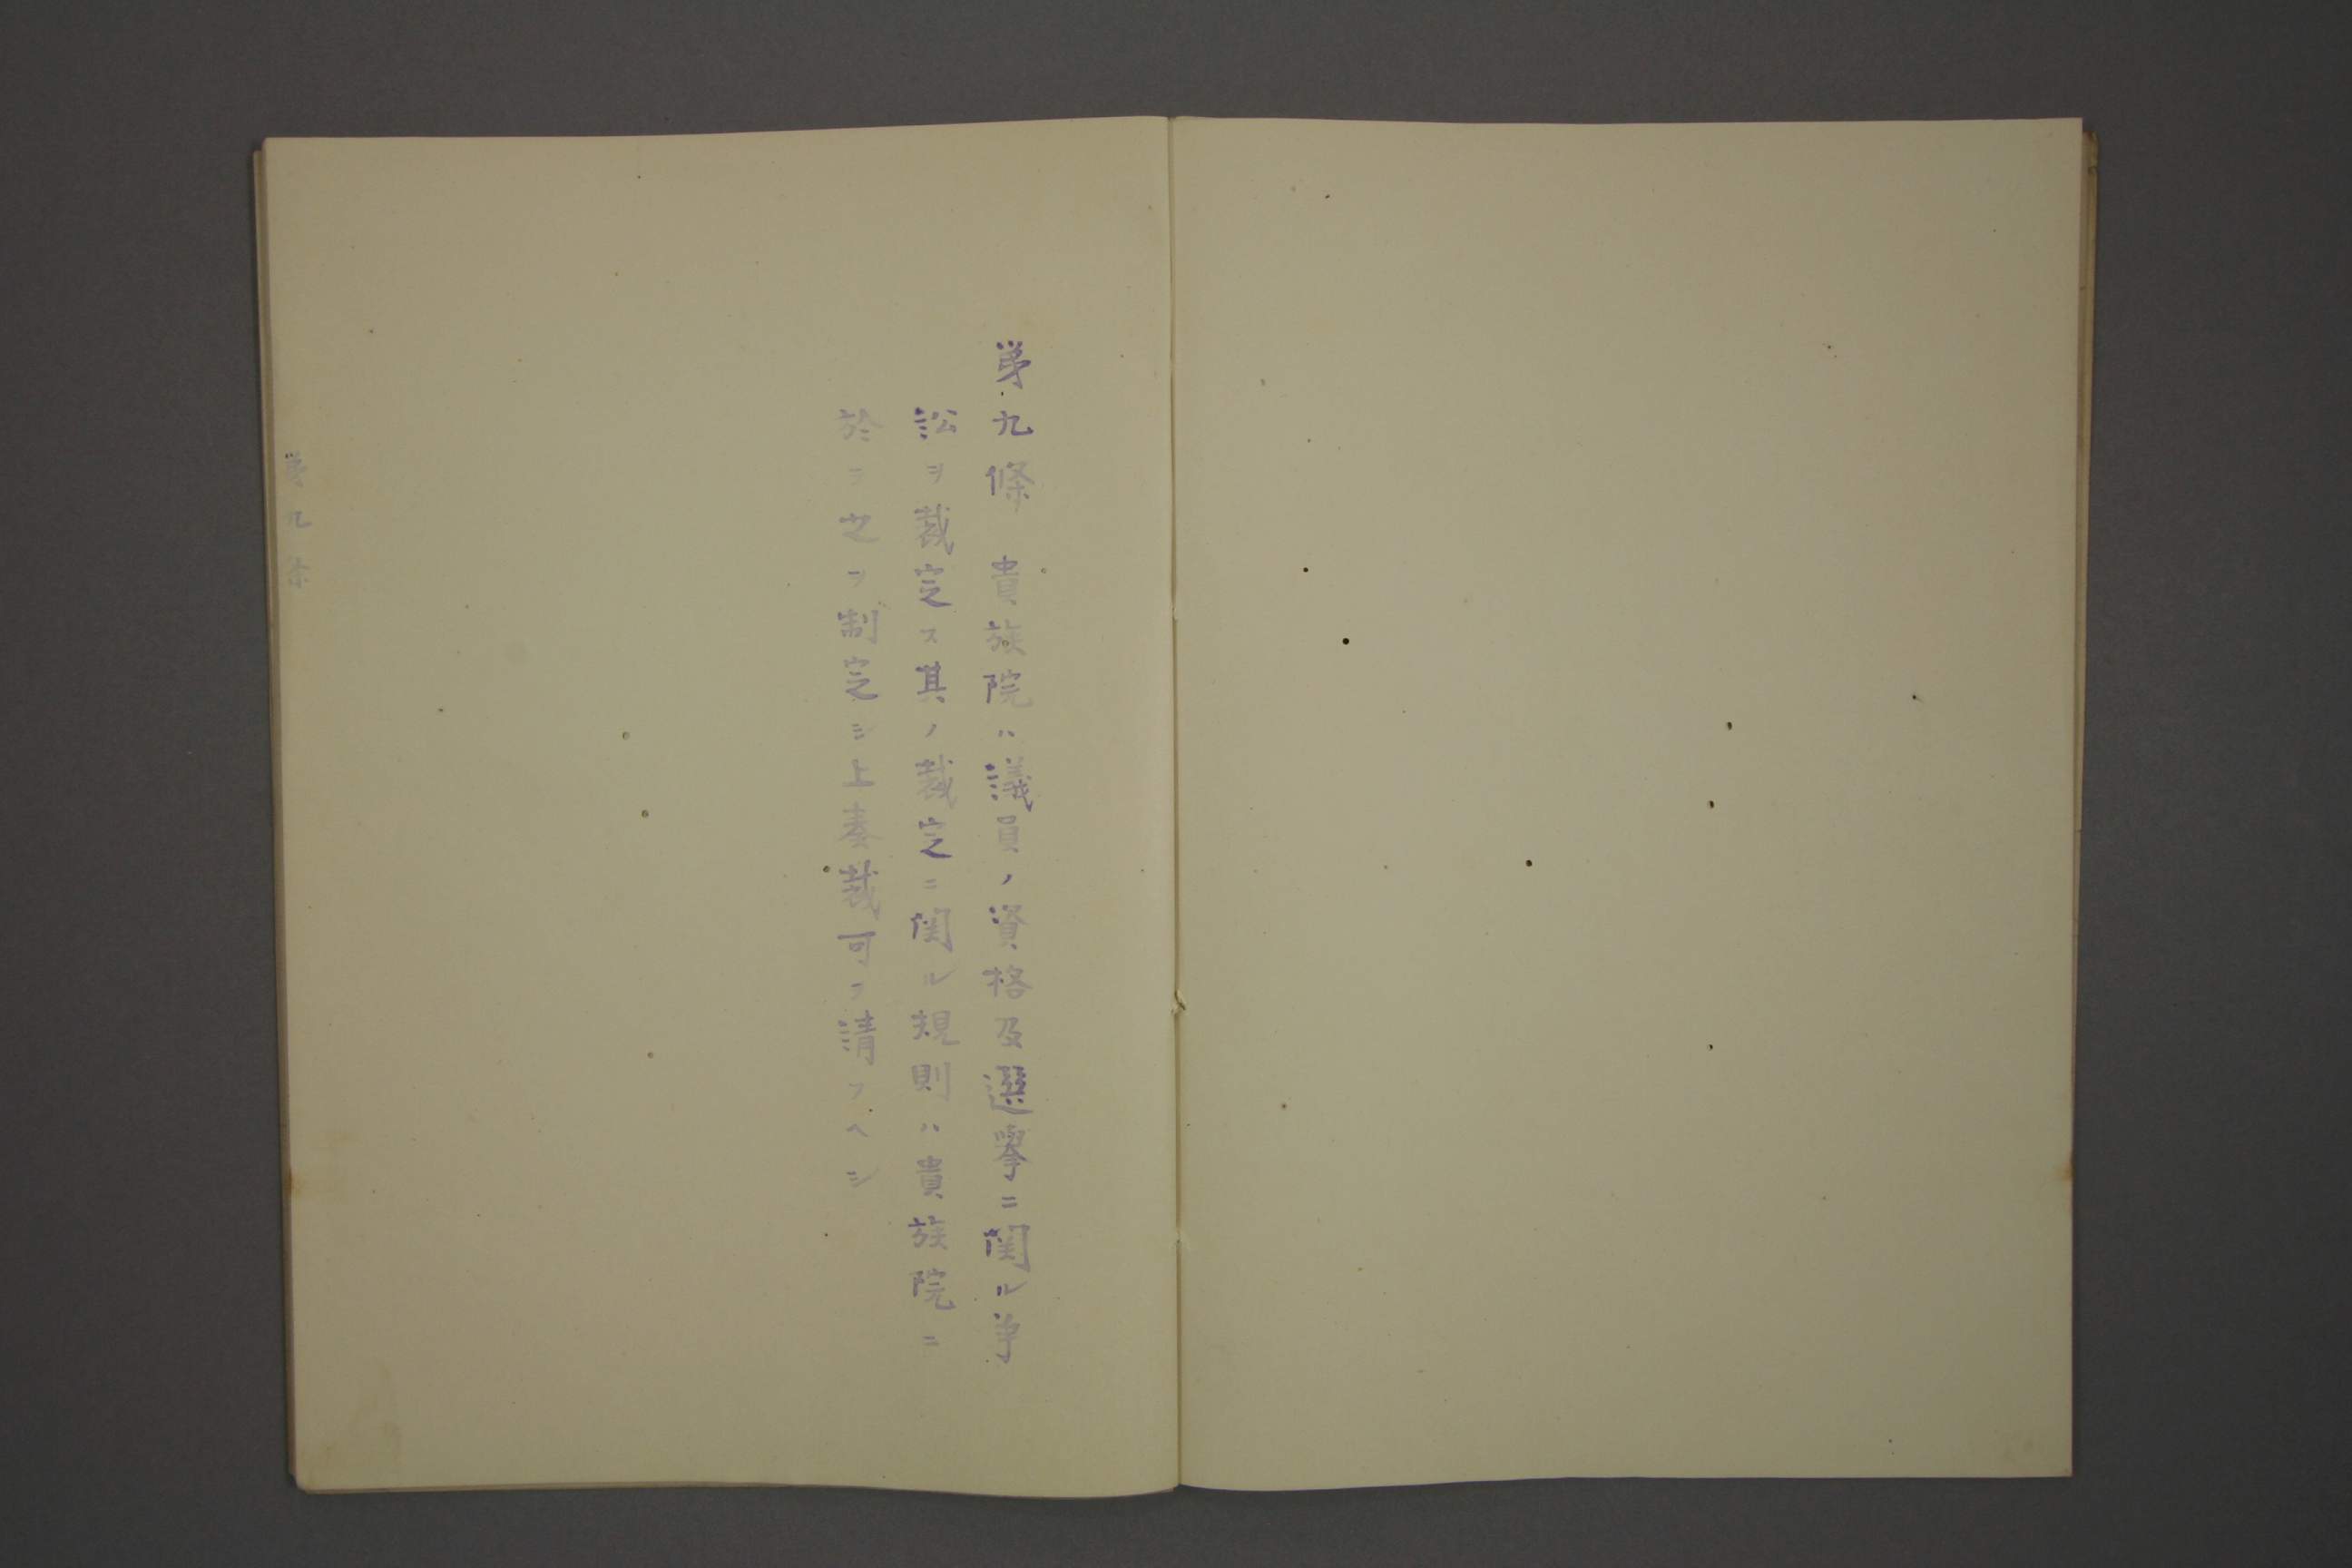 第九條　貴族院ハ議員ノ資格及選擧ニ関ル争
訟ヲ裁定ス其ノ裁定ニ関ル規則ハ貴族院ニ
於テ之ヲ制定シ上奏裁可ヲ請フヘシ
第九条